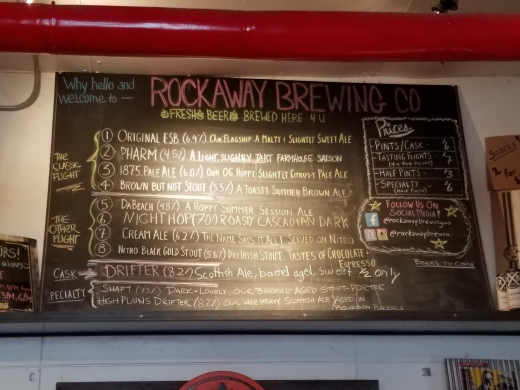 Why hello and
welcome to —
ROCKAWAY BREWING CO
FRESH BEER BREWED HERE 4 U
THE CLASSIC FLIGHT
1 ORIGINAL ESB (6.4%) OUR FLAGSHIP. A MALTY + SLIGHTLY SWEET ALE
2 PHARM (4.5%) A LIGHT, SLIGHTLY TART FARMHOUSE SAISON
3 1875 PALE ALE (6.0%) OUR OG HOPPY SLIGHTLY CITRUSY PALE ALE
4 BROWN BUT NOT STOUT (5.5%) A TOASTY SUMMER BROWN ALE
THE OTHER FLIGHT
5 DABEACH (4.8%) A HOPPY SUMMER SESSION ALE
6 NIGHTHOP (7.0%) ROASTY CASCADIAN DARK
7 CREAM ALE (6.2%) THE NAME SAYS IT ALL! SERVED ON NITRO
8 NITRO BLACK GOLD STOUT (5.6%) DRY IRISH STOUT. TASTES OF CHOCOLATE + ESPRESSO
CASK → DRIFTER (8.2%) Scottish Ale, barrel aged, sweet ½ only
SPECIALTY
SHAFT DARK + LOVELY, OUR BARREL AGED STOUT-PORTER
HIGH PLAINS DRIFTER (8.2%) OUR WEE HEAVY SCOTTISH ALE AGED IN
BOURBON BARRELS
Prices
PINTS/CASK - 6
TASTING FLIGHTS - 7
HALF PINTS - 3
SPECIALTY - 6
(HALF PINTS)
FOLLOW US ON
SOCIAL MEDIA!
@rockawaybrewing
@rockawaybrewco
BEERS TO COME